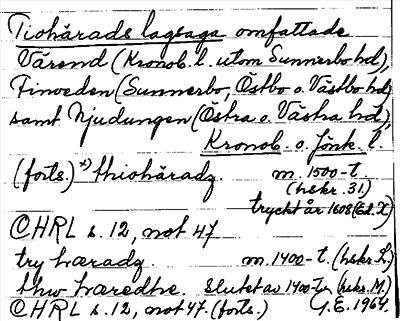 Tiohärads lagsaga omfattade
Värend (Kronob. l. utom Sunnerbo hd),
Finveden (Sunnerbo, Östbo o. Västbo hd)
samt Njudungen (Östra o. Västra hd),
Kronob. o. Jönk. l.
(forts.) *) thiohäradz m. 1500-t.
(hskr. 31)
tryckt år 1608 (Ed. X)
©HRL s. 12, not 47
try hæradz m. 1400-t. (hskr. L.)
thw hæredhe. slutet av 1400-t. (hskr. M.)
©HRL s. 12, not 47. (forts.) G.E. 1964.